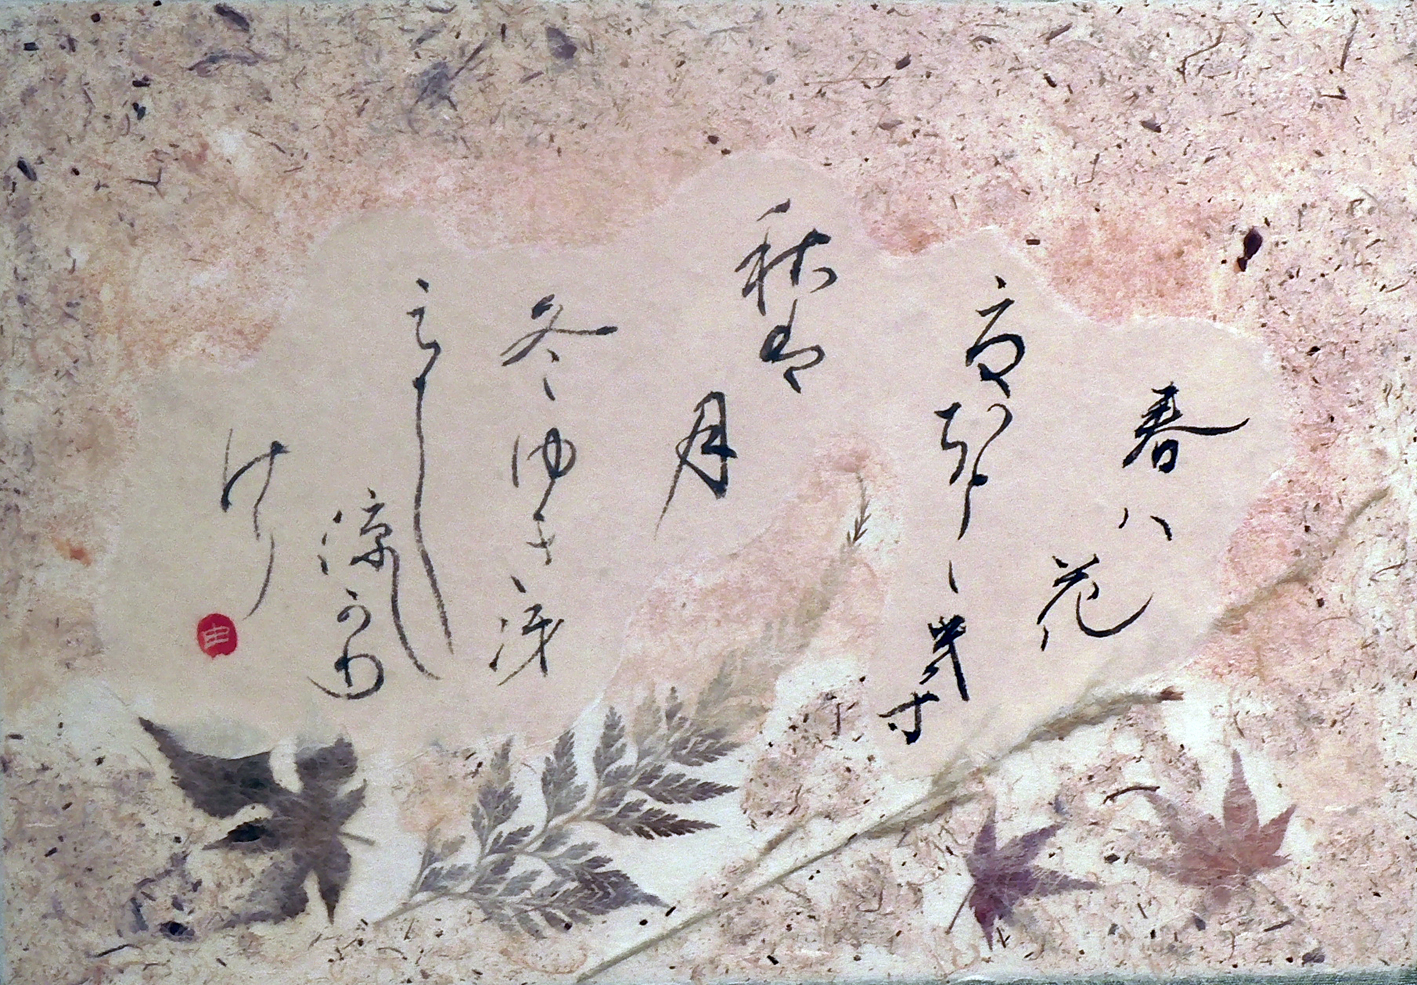 春ハ
花
夏ほとゝ幾寸
秋は
月
冬ゆき冴
えて
涼しかり
けり
由